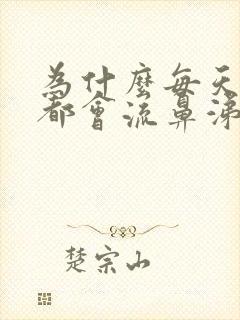 為什麼每天
都會流鼻涕
楚宗山